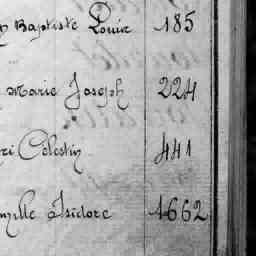 n Baptiste Louis 185
Marie Joseph 224
ri Célestin 441
mille Isidore 1662